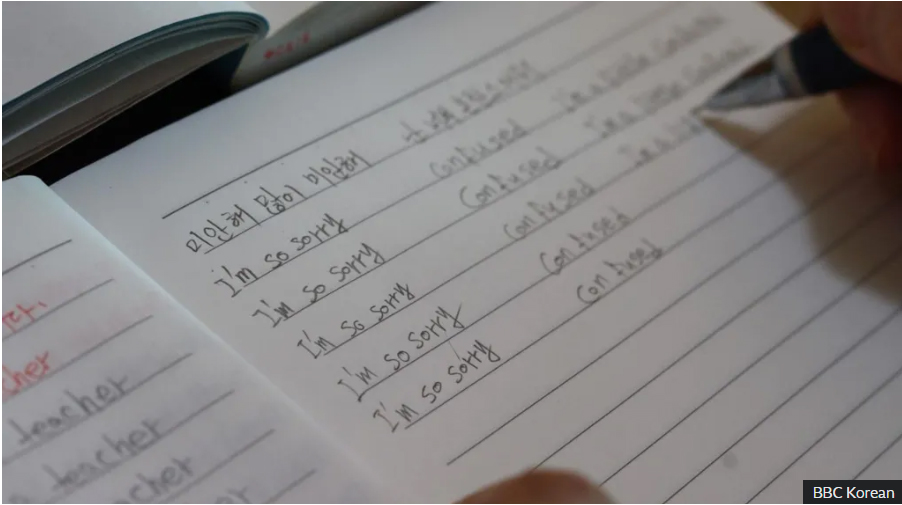 미안해 많이 미안해
I'm so sorry confused I'm a little confused
I'm so sorry confused I'm a little confused
I'm so sorry confused I'm a
I'm so sorry confused
I'm so sorry confused
cher
teacher
a teacher
acher
er
BBC Korean